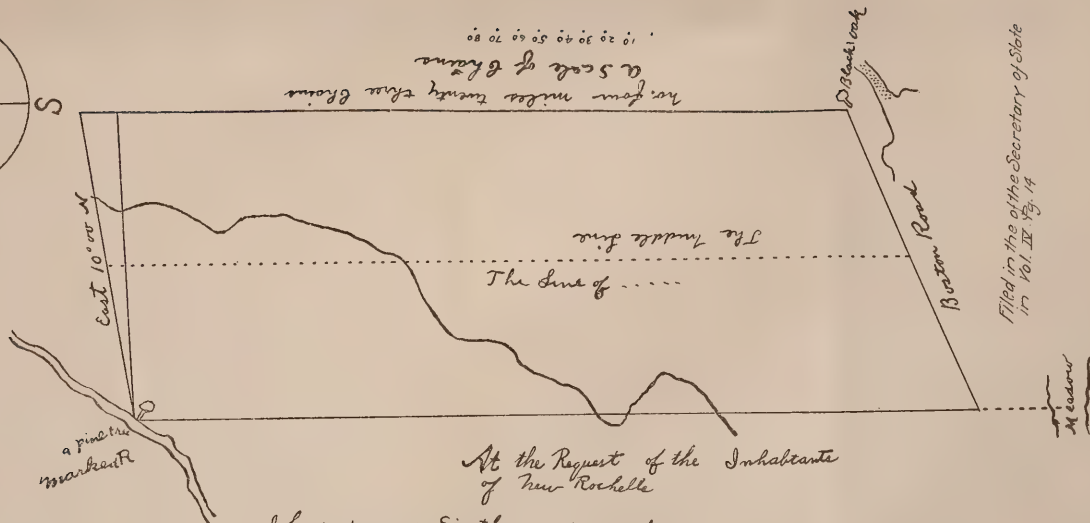 S
. 10 20 30 40 50 60 70 80
a Scale of Chains
no. four miles twenty three Chains
Black oak
Boston Road
Filed in the of the Secretary of State
in Vol. IV. Pg. 14
East 10°00 N
The Middle Line
Meadow
a pine tree
marked R
At the Request of the Inhabtants
of New Rochelle